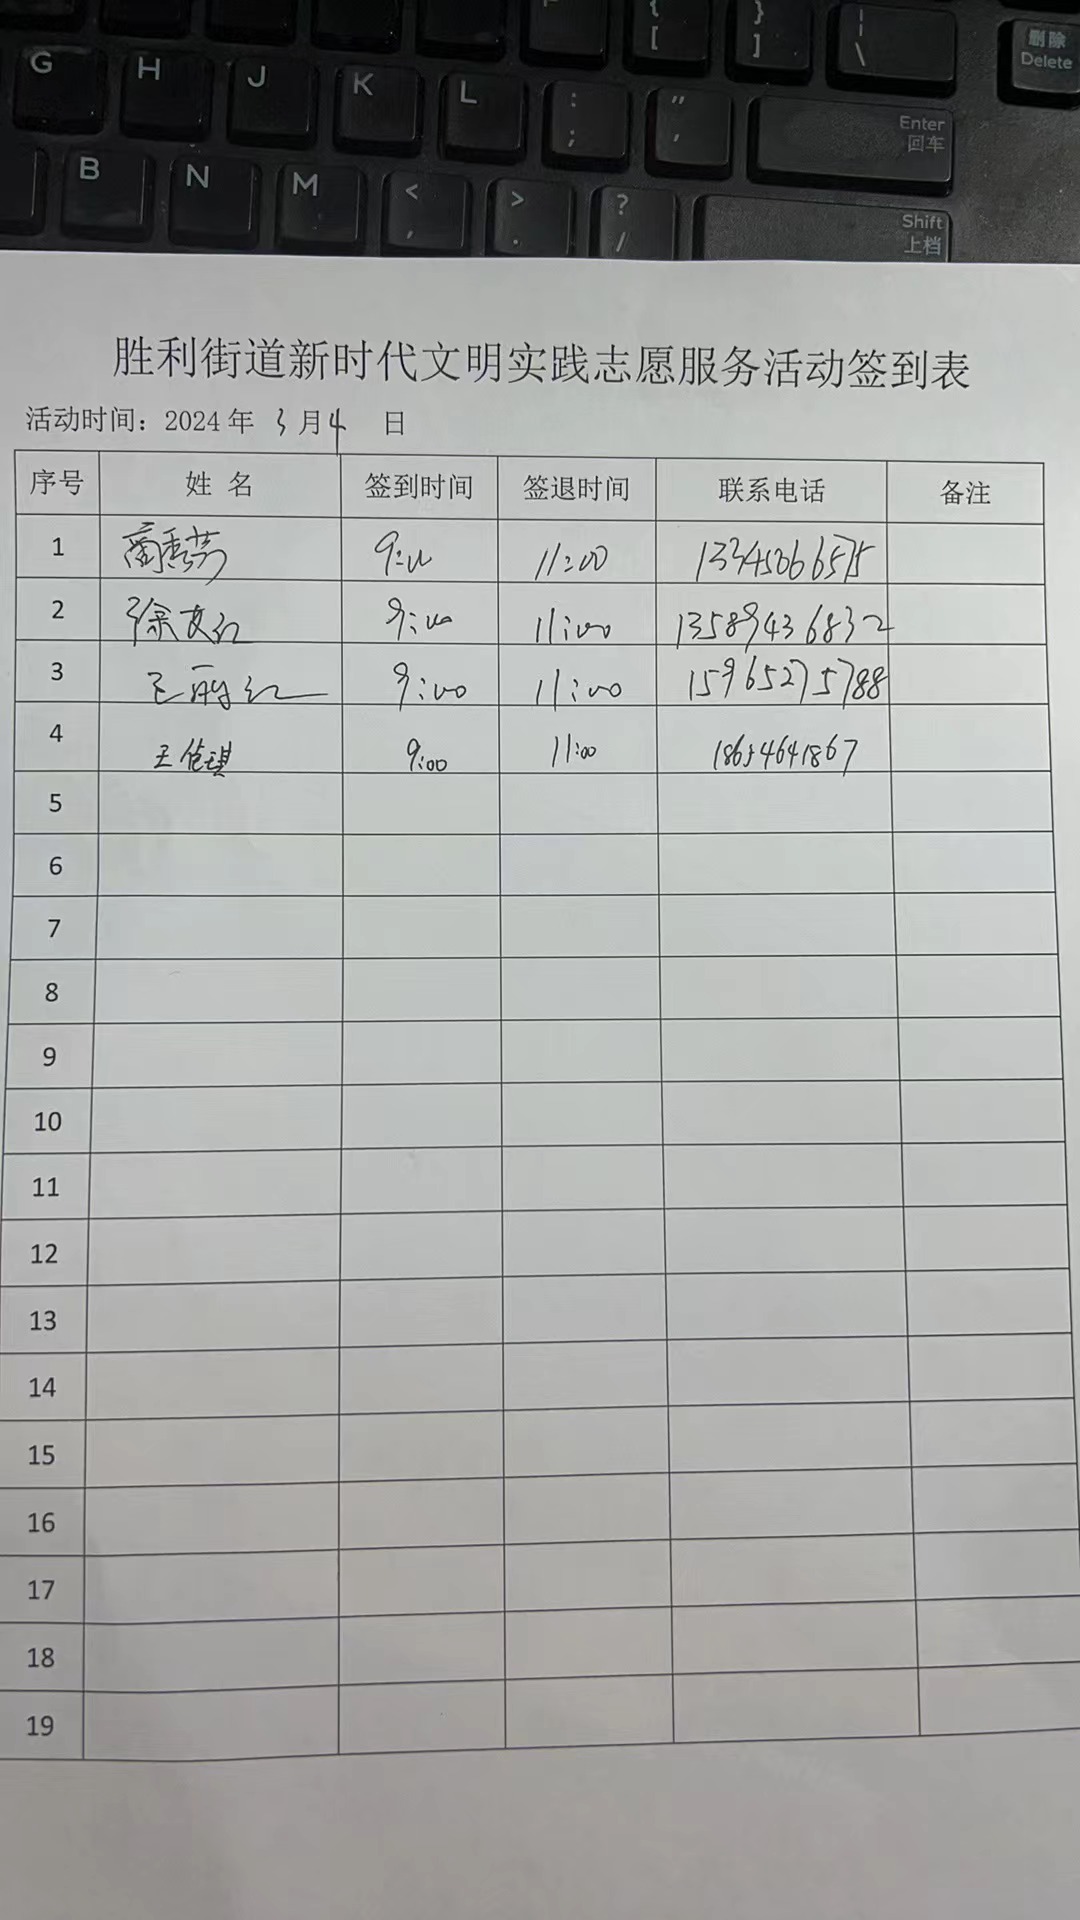 { }
[ ] | \ 删除 Delete
G H J K L : ; " ' Enter 回车
B N M < , > . ? / Shift 上档
胜利街道新时代文明实践志愿服务活动签到表
活动时间：2024 年 3 月 4 日
序号 姓 名 签到时间 签退时间 联系电话 备注
1 秀芳 9:00 11:00 13345066575
2 徐艾红 9:00 11:00 13589436832
3 王丽红 9:00 11:00 15965275788
4 王倩琪 9:00 11:00 18654641867
5
6
7
8
9
10
11
12
13
14
15
16
17
18
19